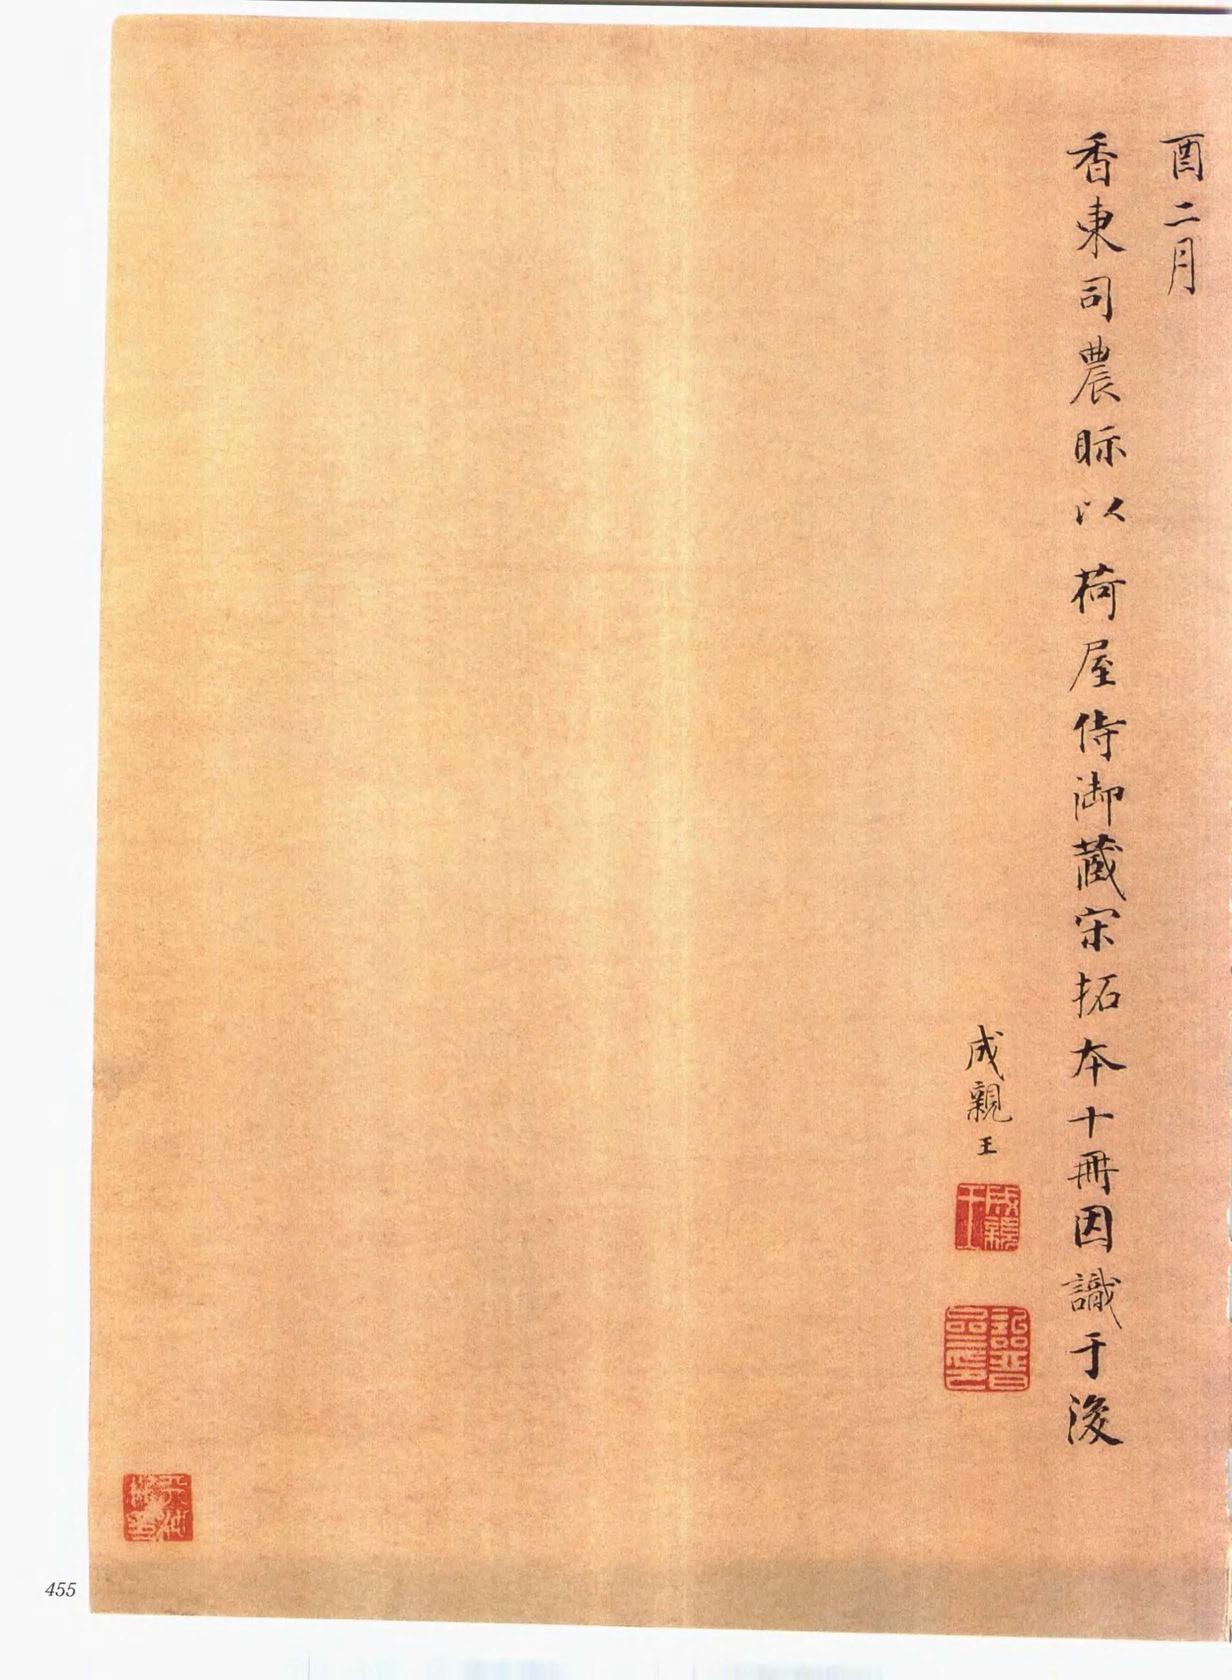 酉二月
香東司農眎以荷屋侍御藏宋拓本十冊因識于後
成親王
成親王
詒晉齋印
455